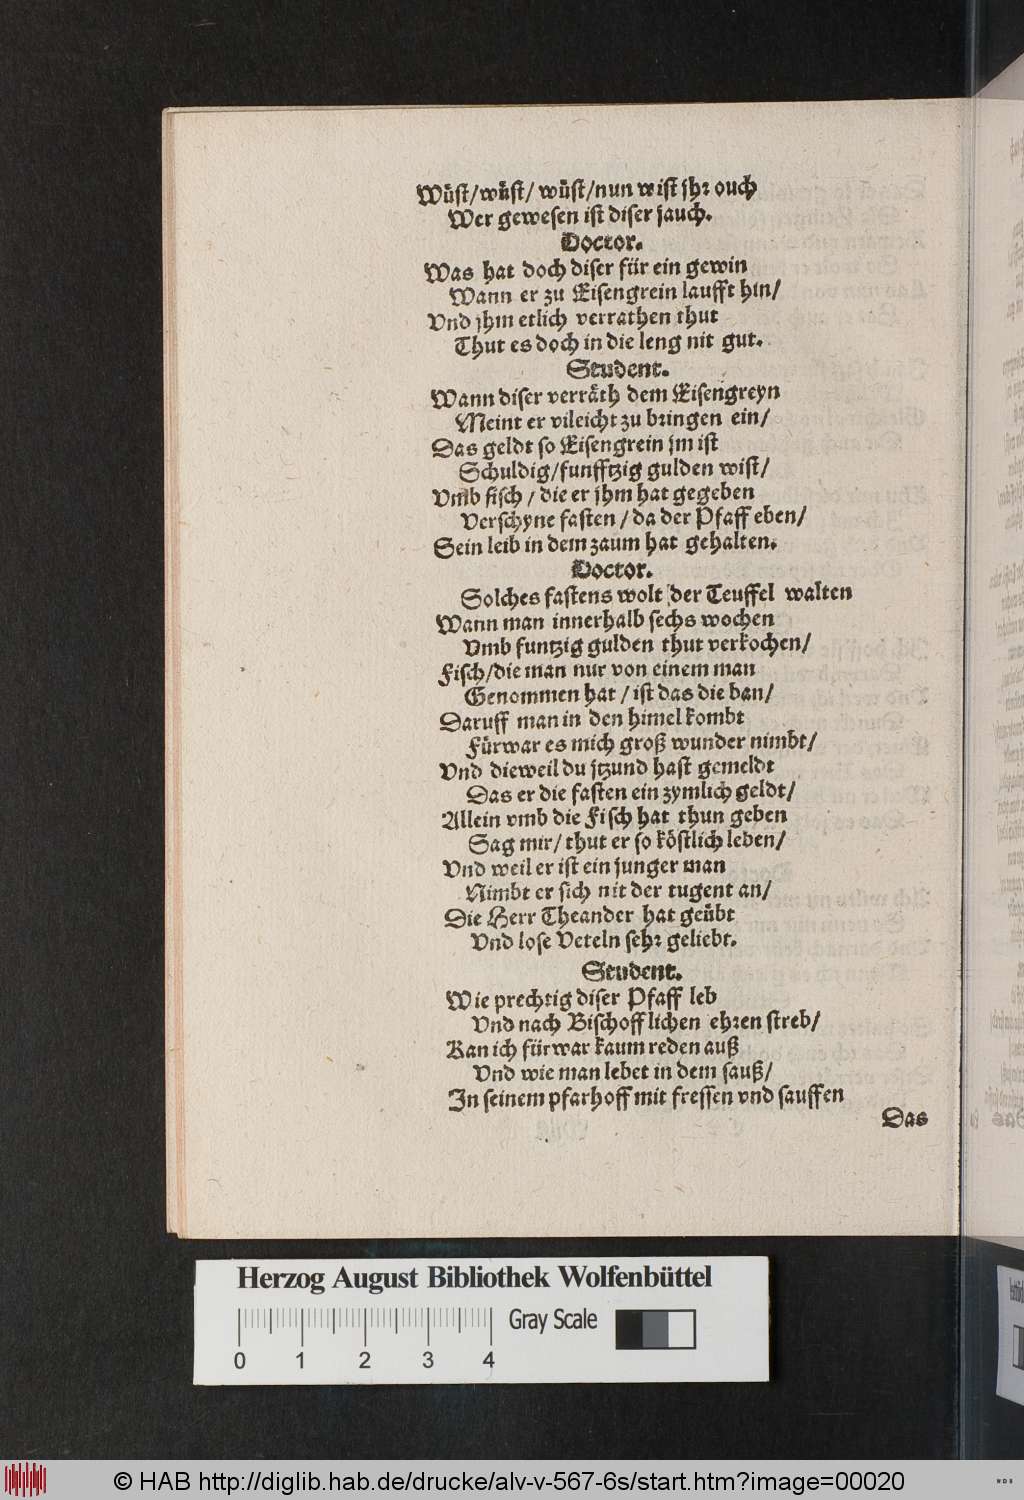 Wüst/wüst/ wüst/nun wist jhr ouch
Wer gewesen ist diser jauch.
Doctor.
Was hat doch diser für ein gewin
Wann er zu Eisengrein laufft hin/
Vnd jhm etlich verrathen thut
Thut es doch in die leng nit gut.
Student.
Wann diser verräth dem Eisengreyn
Meint er vileicht zu bringen ein/
Das geldt so Eisengrein jm ist
Schuldig/funfftzig gulden wist/
Vmb fisch / die er jhm hat gegeben
Verschyne fasten / da der Pfaff eben/
Sein leib in dem zaum hat gehalten.
Doctor.
Solches fastens wolt der Teuffel walten
Wann man innerhalb sechs wochen
Vmb funtzig gulden thut verkochen/
Fisch/die man nur von einem man
Genommen hat / ist das die ban/
Daruff man in den himel kombt
Fürwar es mich groß wunder nimbt/
Vnd dieweil du jtzund hast gemeldt
Das er die fasten ein zymlich geldt/
Allein vmb die Fisch hat thun geben
Sag mir/ thut er so köstlich leben/
Vnd weil er ist ein junger man
Nimbt er sich nit der tugent an/
Die Herr Theander hat geübt
Vnd lose Veteln sehr geliebt.
Student.
Wie prechtig diser Pfaff leb
Vnd nach Bischofflichen ehren streb/
Kan ich fürwar kaum reden auß
Vnd wie man lebet in dem sauß/
In seinem pfarhoff mit fressen vnd sauffen
Das
Herzog August Bibliothek Wolfenbüttel
Gray Scale
0 1 2 3 4
© HAB http://diglib.hab.de/drucke/alv-v-567-6s/start.htm?image=00020